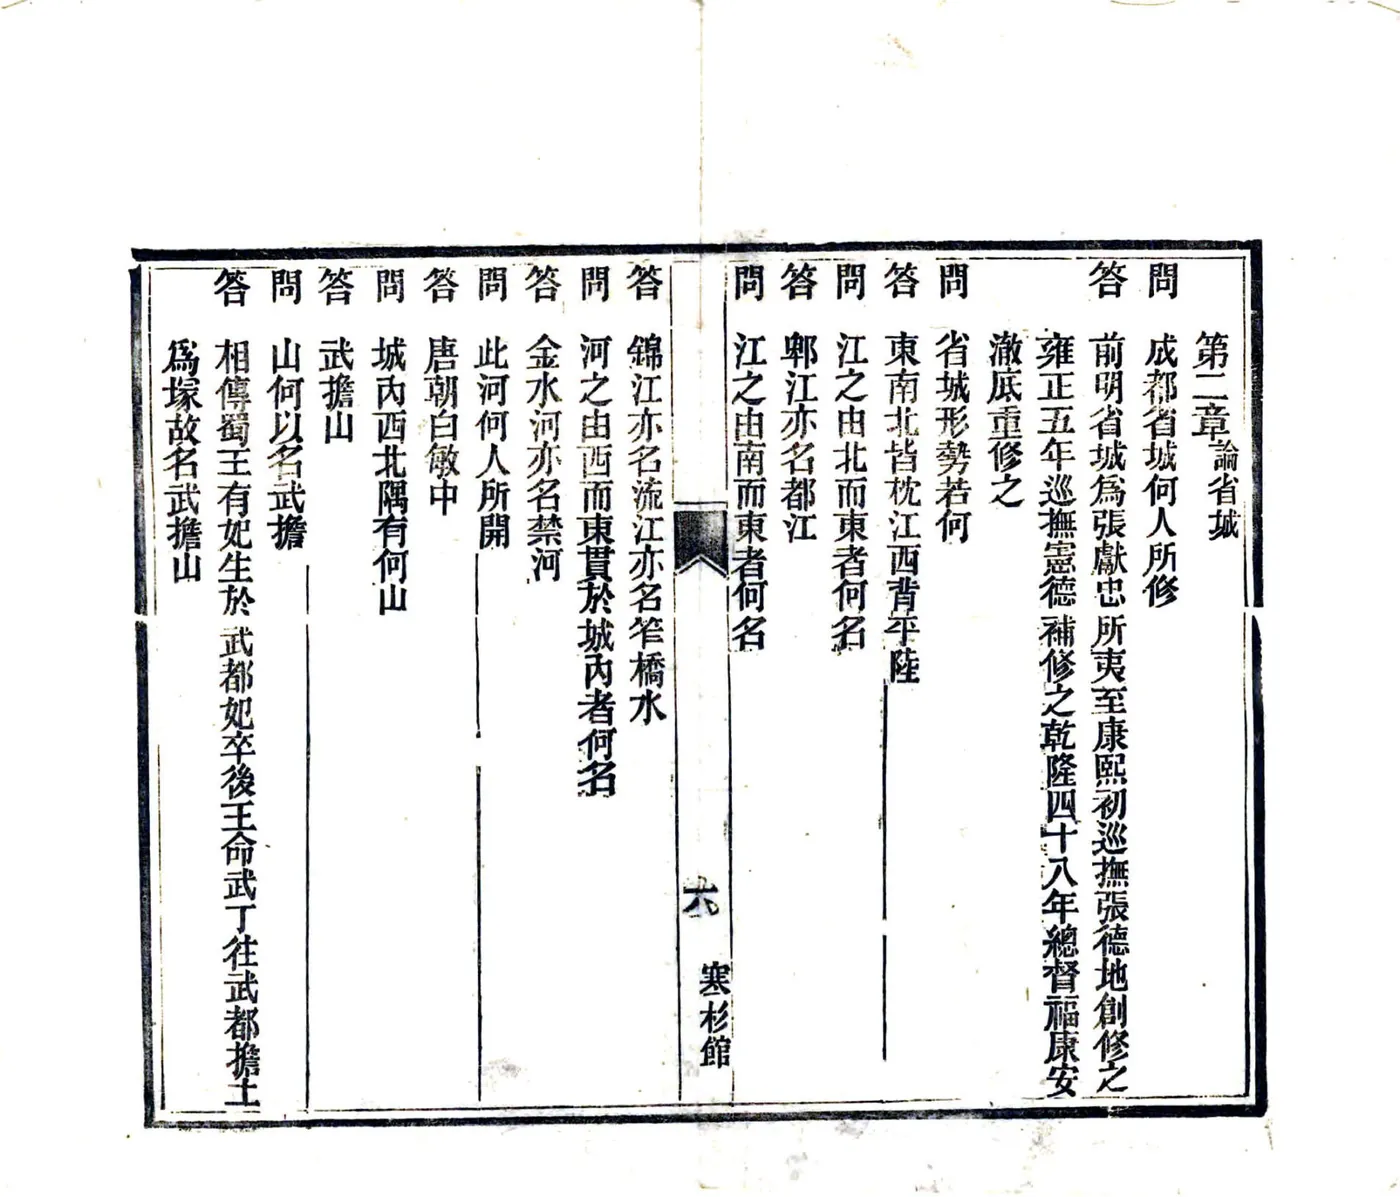 第二章論省城
問 成都省城何人所修
答 前明省城爲張獻忠所夷至康熙初巡撫張德地創修之
雍正五年巡撫憲德補修之乾隆四十八年總督福康安
澈底重修之
問 省城形勢若何
答 東南北皆枕江西背平陸
問 江之由北而東者何名
答 郫江亦名都江
問 江之由南而東者何名
六 寒杉館
答 錦江亦名流江亦名笮橋水
問 河之由西而東貫於城內者何名
答 金水河亦名禁河
問 此河何人所開
答 唐朝白敏中
問 城內西北隅有何山
答 武擔山
問 山何以名武擔
答 相傳蜀王有妃生於武都妃卒後王命武丁往武都擔土
爲塚故名武擔山